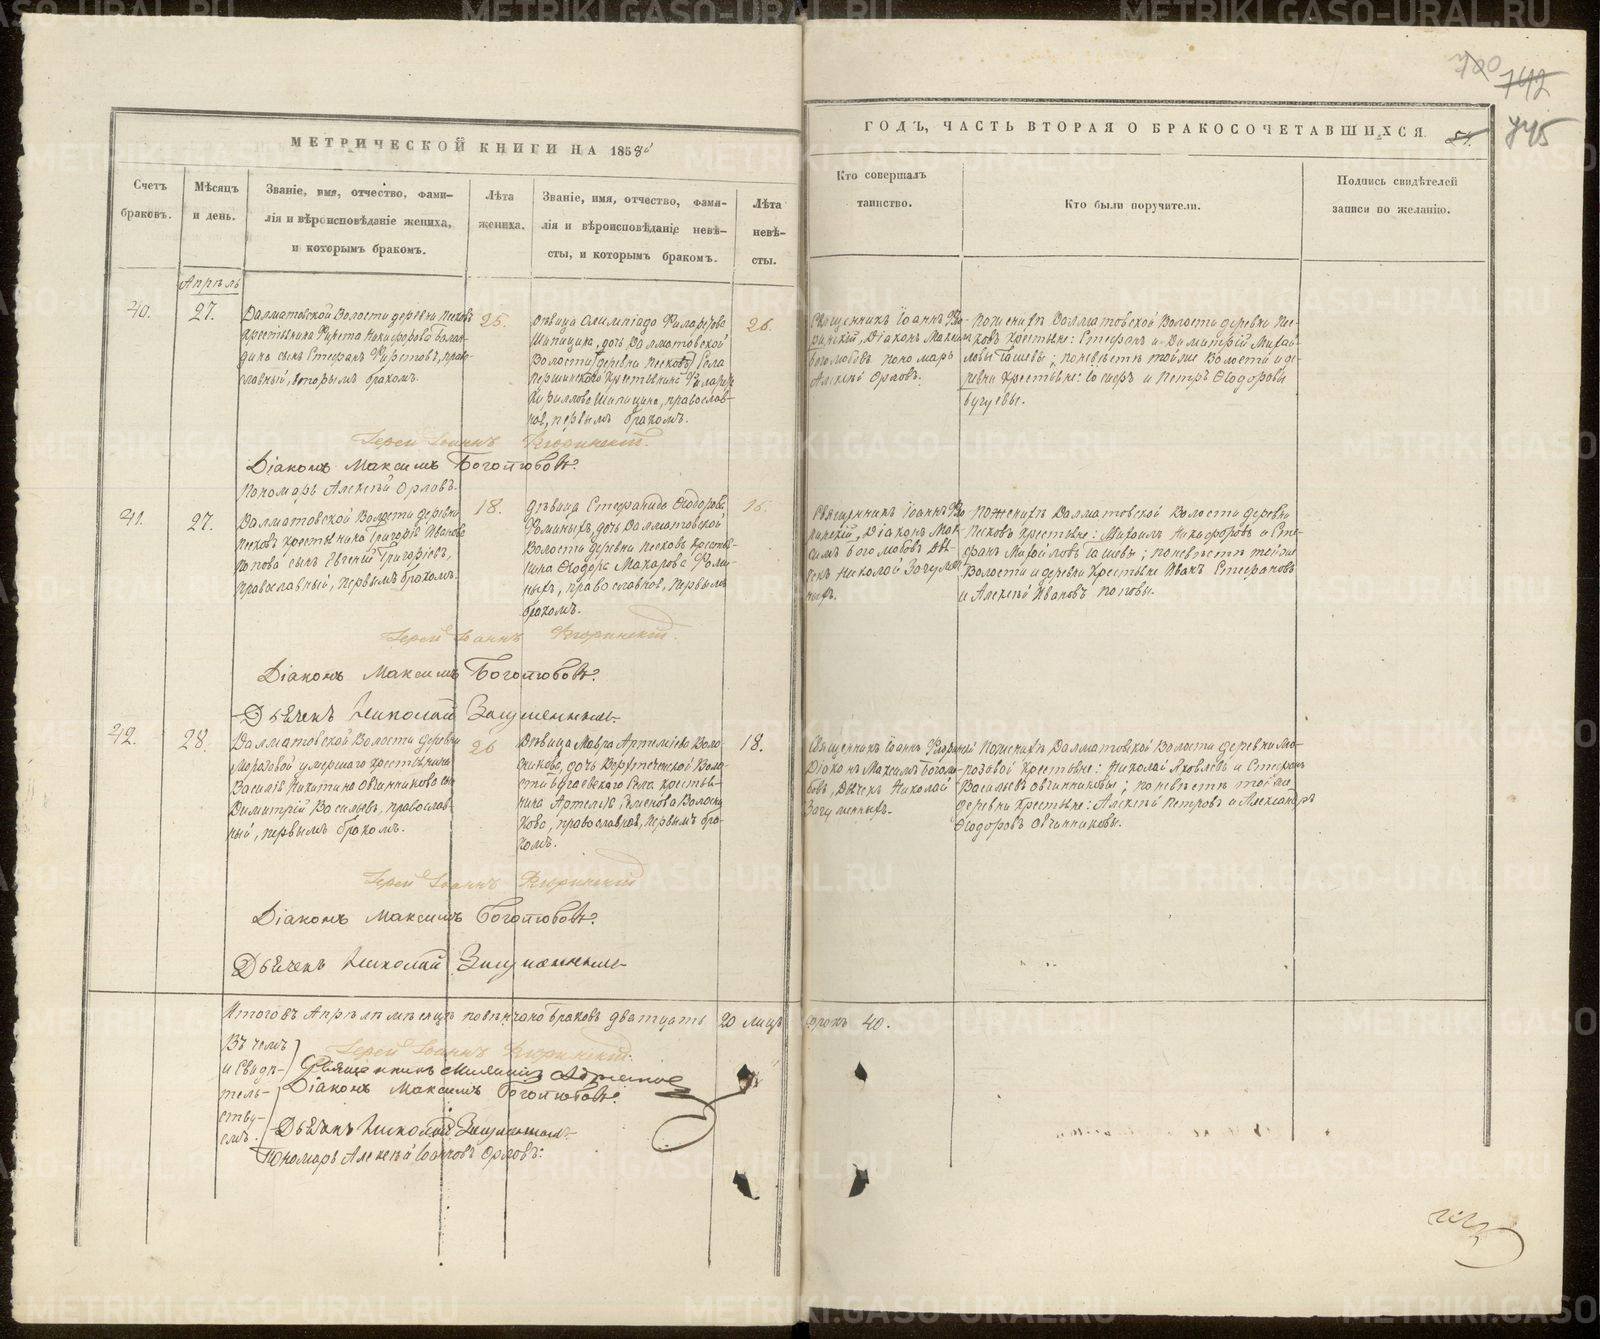 МЕТРИЧЕСКОЙ КНИГИ НА 1858й
ГОДЪ, ЧАСТЬ ВТОРАЯ О БРАКОСОЧЕТАВШИХСЯ.
720 742
745
Счетъ браковъ.
Мѣсяцъ и день.
Званіе, имя, отчество, фами-
лія и вѣроисповѣданіе жениха,
и которымъ бракомъ.
Лѣта жениха.
Званіе, имя, отчество, фами-
лія и вѣроисповѣданіе невѣ-
сты, и которымъ бракомъ.
Лѣта невѣ-
сты.
Кто совершалъ
таинство.
Кто были поручители.
Подпись свидѣтелей
записи по желанію.
Апрѣль
40.
27.
Далматовской Волости деревни Песковъ
крестьянина Никифорова
сынъ Стефанъ право-
славный, вторымъ бракомъ.
25.
Дѣвица Олимпіада Филаретова
Шипицина, дочь Далматовской
Волости деревни Песковъ, Села
Першинскаго крестьянина
Кириллова Шипицина, православ-
ной, первымъ бракомъ.
26.
Священникъ Іоаннъ Фло-
ринскій, Діаконъ Макси
Боголюбовъ пономарь
Алексѣй Орловъ.
По женихѣ Далматовской Волости деревни Пес-
ковъ Крестьяне: Стефанъ и Димитрій Михай
ловы ; по невѣстѣ тойже Волости и де-
ревни Крестьяне: и Петръ Ѳеодоровы
Іерей Іоаннъ Флоринскій.
Діаконъ Максимъ Боголюбовъ.
Пономарь Алексѣй Орловъ.
41.
27.
Далматовской Волости деревни
Песковъ крестьянина Григорія Иванова
Попова сынъ Евгеній Григоріевъ,
православный, первымъ бракомъ.
18.
Дѣвица Стефанида Ѳеодорова
Фоминыхъ дочь Далматовской
Волости деревни Песковъ крестья-
нина Ѳеодора Макарова Фоми-
ныхъ, православной, первымъ
бракомъ.
Священникъ Іоаннъ Фло
ринскій, Діаконъ Мак-
симъ Боголюбовъ Дья-
чекъ Николай Зачумен-
ныхъ.
По женихѣ Далматовской Волости деревни
Песковъ Крестьяне: Михаилъ Никифоровъ и Сте-
фанъ Михайловъ ; по невѣстѣ той же
Волости и деревни Крестьяне Иванъ Стефановъ
и Алексѣй Ивановъ Поповы.
Іерей Іоаннъ Флоринскій.
Діаконъ Максимъ Боголюбовъ.
Дьячекъ Николай
42.
28.
Далматовской Волости деревни
Морозовой умершаго крестьянина
Василія Никитина Овчинникова сынъ
Димитрій Васильевъ, православ-
ный, первымъ бракомъ.
26
Дѣвица Мавра Артеміева Воло-
сникова, дочь Верхтеченской Воло-
сти Бугаевскаго Села крестья-
нина Артемія Семенова Волосни
кова, православной, первымъ бра-
комъ.
18.
Священникъ Іоаннъ Флоринскій
Діаконъ Максимъ Боголю-
бовъ, Дьячекъ Николай
Зачуменныхъ.
По женихѣ Далматовской Волости деревни Мо-
розовой Крестьяне: Николай Яковлевъ и Стефанъ
Васильевъ Овчинниковы; по невѣстѣ той же
деревни Крестьяне: Алексѣй Петровъ и Александръ
Ѳеодоровъ Овчинниковы.
Іерей Іоаннъ Флоринскій
Діаконъ Максимъ Боголюбовъ.
Дьячекъ Николай
Итого въ Апрѣлѣ мѣсяцѣ повѣнчано браковъ двадцать 20 лицъ сорокъ 40.
Въ чемъ
и свидѣ-
тель-
ству-
емъ.
Іерей Іоаннъ Флоринскій.
Священникъ
Діаконъ Максимъ Боголюбовъ.
Дьячекъ Николай
Пономарь Алексѣй Орловъ.
METRIKI.GASO-URAL.RU